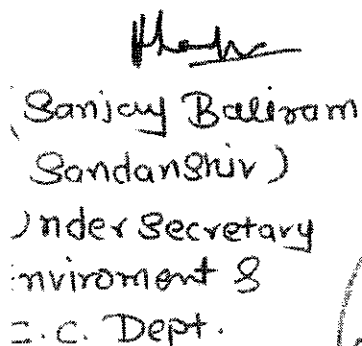 (Sanjay Baliram
Sandanshiv)
Under Secretary
Enviroment &
C.C. Dept.